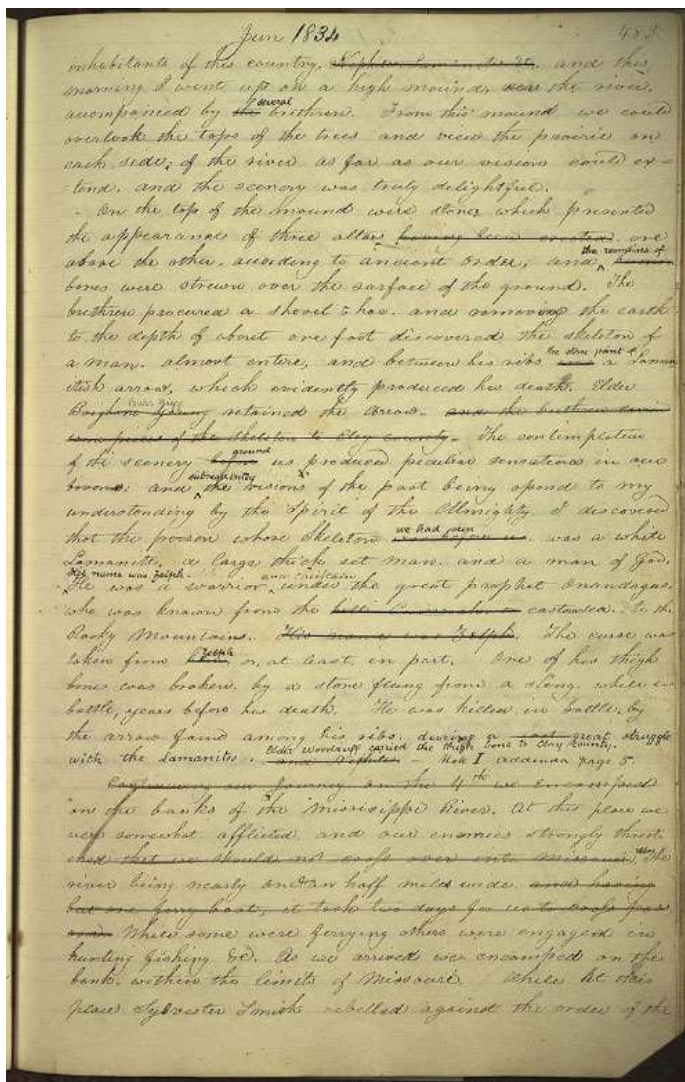 Jun 1834 483
inhabitants of this country. Nephites Lamanites &c. and this
morning I went up on a high mound, near the river,
accompanied by the several brethren. From this mound we could
overlook the tops of the trees and view the prairie on
each side, of the river as far as our vision could ex=
=tend. and the scenery was truly delightful.
On the top of the mound were stones which presented
the appearance of three altars having been erected, one
above the other, according to ancient order; and the remains of human
bones were strewn over the surface of the ground. The
brethren procured a shovel & hoe. and removing the earth
to the depth of about one foot discovered the skeleton of
a man. almost entire, and between his ribs was the stone point of a Laman
itish arrow, which evidently produced his death. Elder
Brigham Young Burr Riggs retained the arrow. and the brethren carried
some pieces of the skeleton to Clay county. The contemplation
of the scenery before ground us produced peculiar sensations in our
bosoms: and subsequently the visions of the past being opend to my
understanding by the Spirit of the Almighty I discovered
that the person whose Skeleton was before us we had seen was a white
Lamanite. a large thick set man. and a man of God.
His name was Zelph. He was a warrior and chieftain under the great prophet Onandagus.
who was known from the hill Cumorah or eastern sea. to the
Rocky Mountains. His name was Zelph. The curse was
taken from Zelph or, at least, in part. One of his thigh
bones was broken. by a stone flung from a sling. while in
battle, years before his death. He was killed in battle. by
the arrow found among his ribs. during a last great struggle
with the Lamanites. and Nephites Elder Woodruff carried the thigh bone to Clay county. — Note I addenda page 5.
Continuing our journey on the 4th we encamped
on the banks of the Mississippi River. At this place we
were somewhat afflicted and our enemies strongly threat
ened that we should not cross over into Missouri. The
river being nearly one & an half miles wide. and having
but one ferry boat, it took two days for us to cross
While some were ferrying others were engaged in
hunting fishing &c. As we arrived we encamped on the
bank. within the limits of Missouri. While at this
place Sylvester Smith rebelled against the order of the